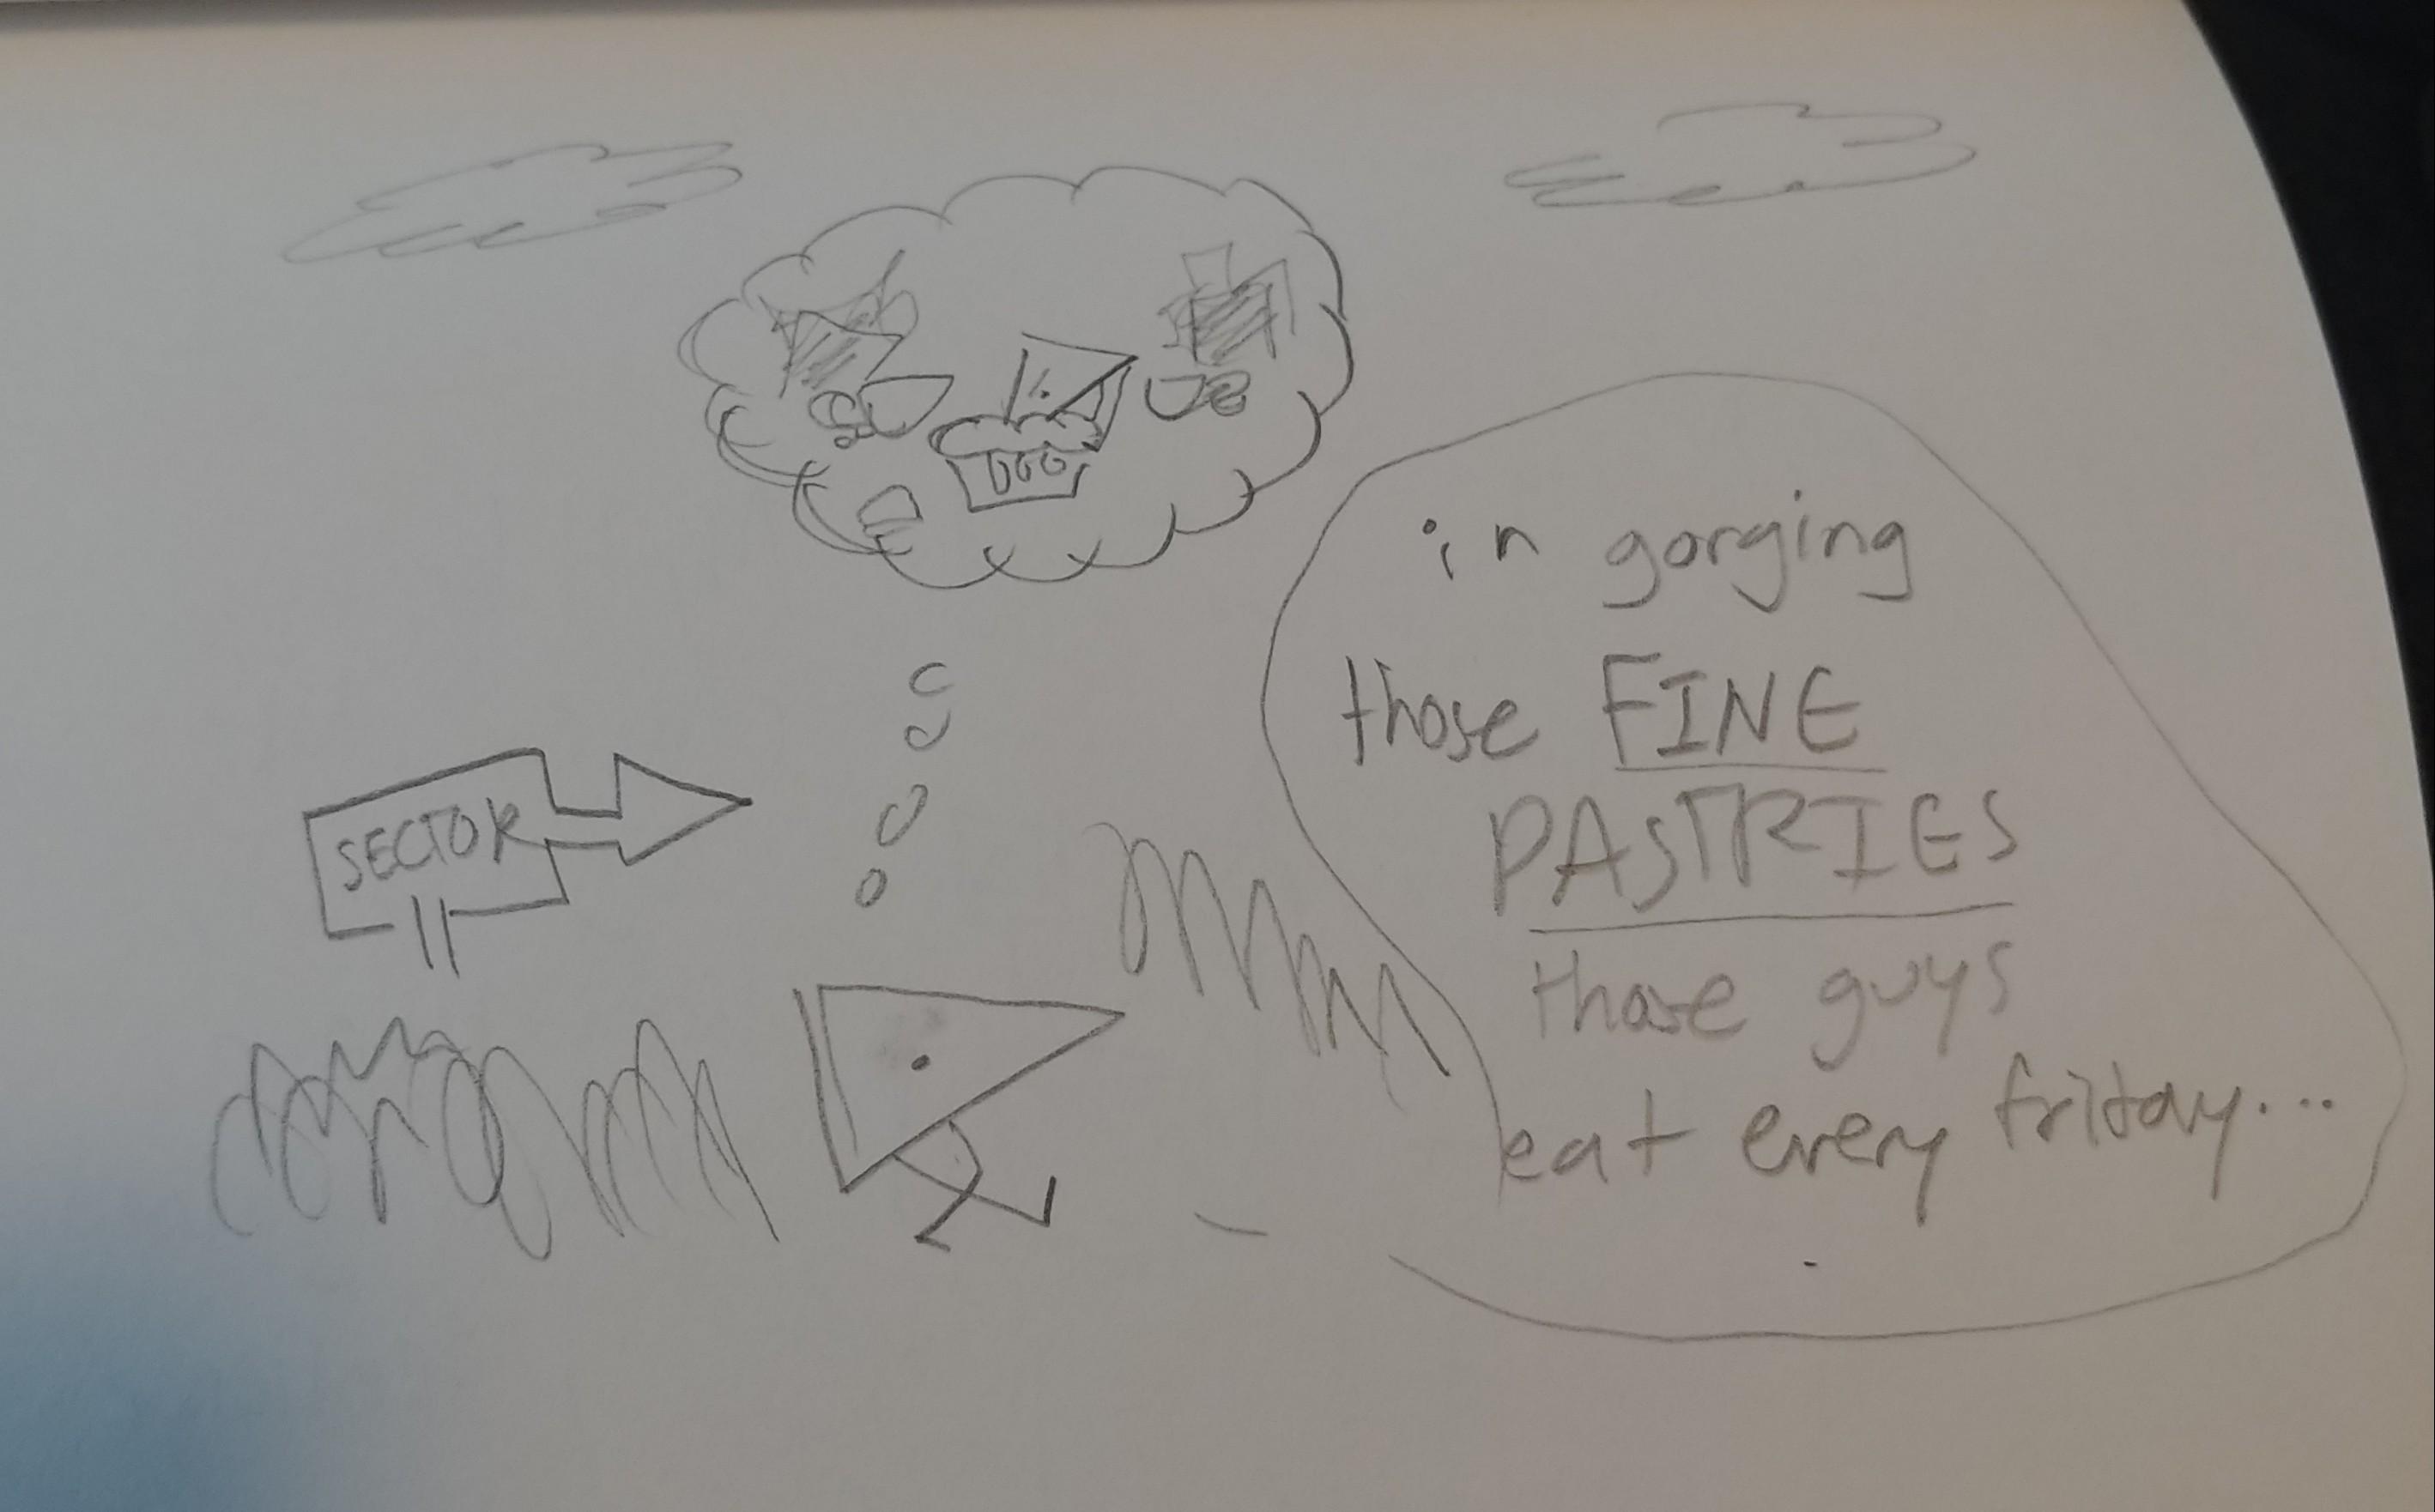 SECTOR
in gorging
those FINE
PASTRIES
those guys
eat every friday...